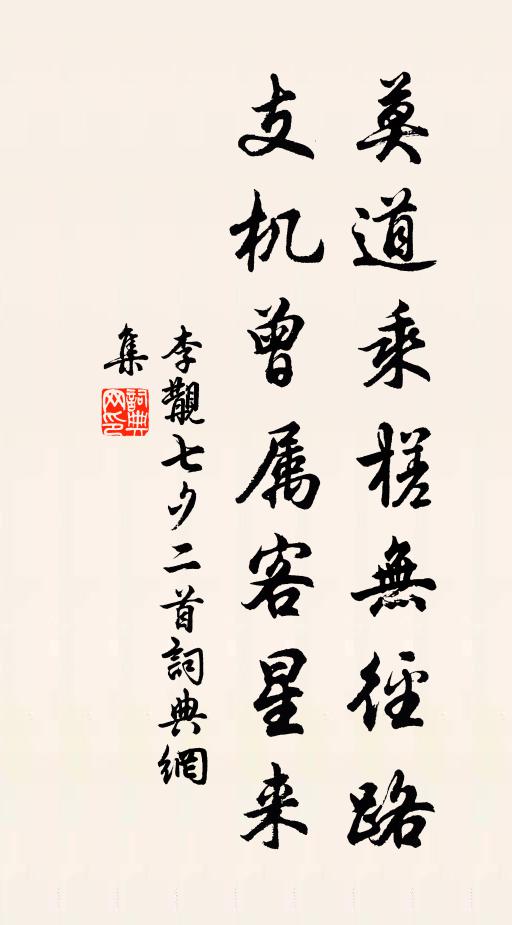 莫道乘槎無徑路
支机曾属客星来
李觀七夕二首詞典網
集
詞典
网印